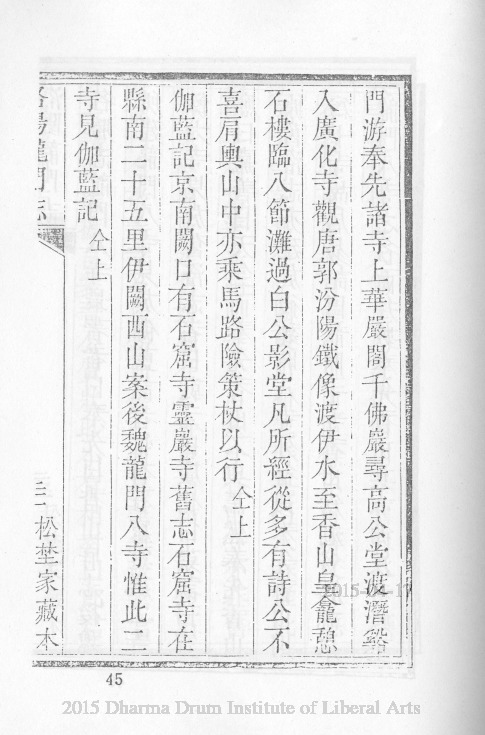 門游奉先諸寺上華嚴閣千佛巖尋高公堂渡潛谿
入廣化寺觀唐郭汾陽鐵像渡伊水至香山皇龕憩
石樓臨八節灘過白公影堂凡所經從多有詩公不
喜肩輿山中亦乘馬路險策杖以行 仝上
伽藍記京南闕口有石窟寺靈巖寺舊志石窟寺在
縣南二十五里伊闕西山案後魏龍門八寺惟此二
寺見伽藍記 仝上
洛陽龍門志
松埜家藏本
45
2015 Dharma Drum Institute of Liberal Arts